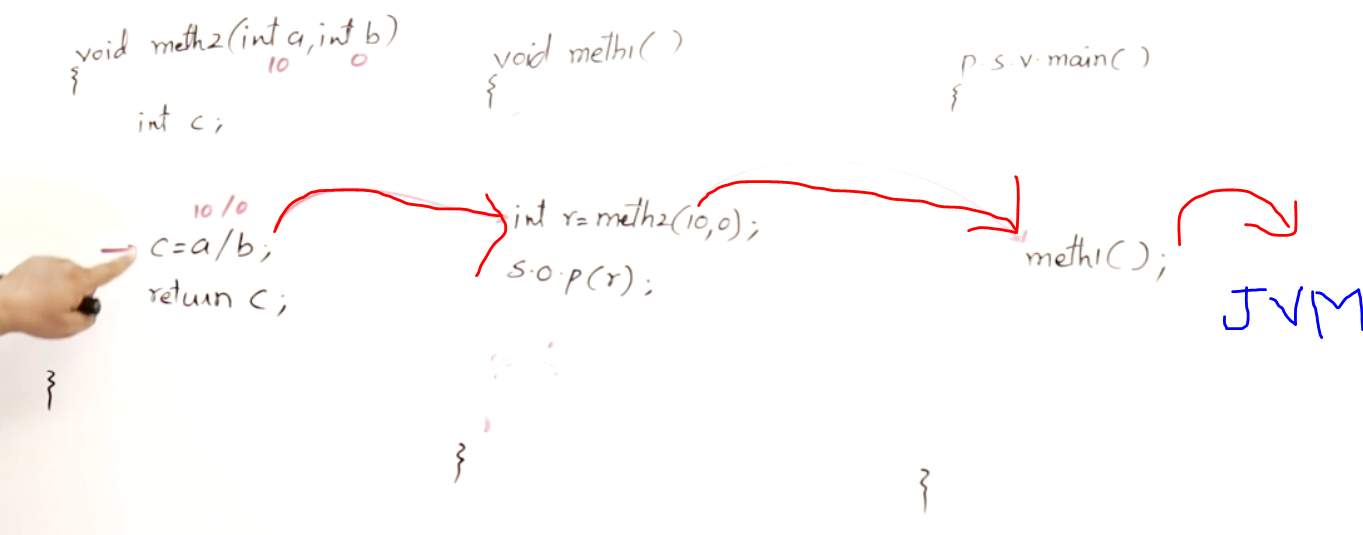 void meth2(int a, int b)
10 0
{
int c;
10/0
c=a/b;
return c;
}
void meth1( )
{
int r=meth2(10,0);
s.o.p(r);
}
p.s.v.main( )
{
meth1( );
}
JVM